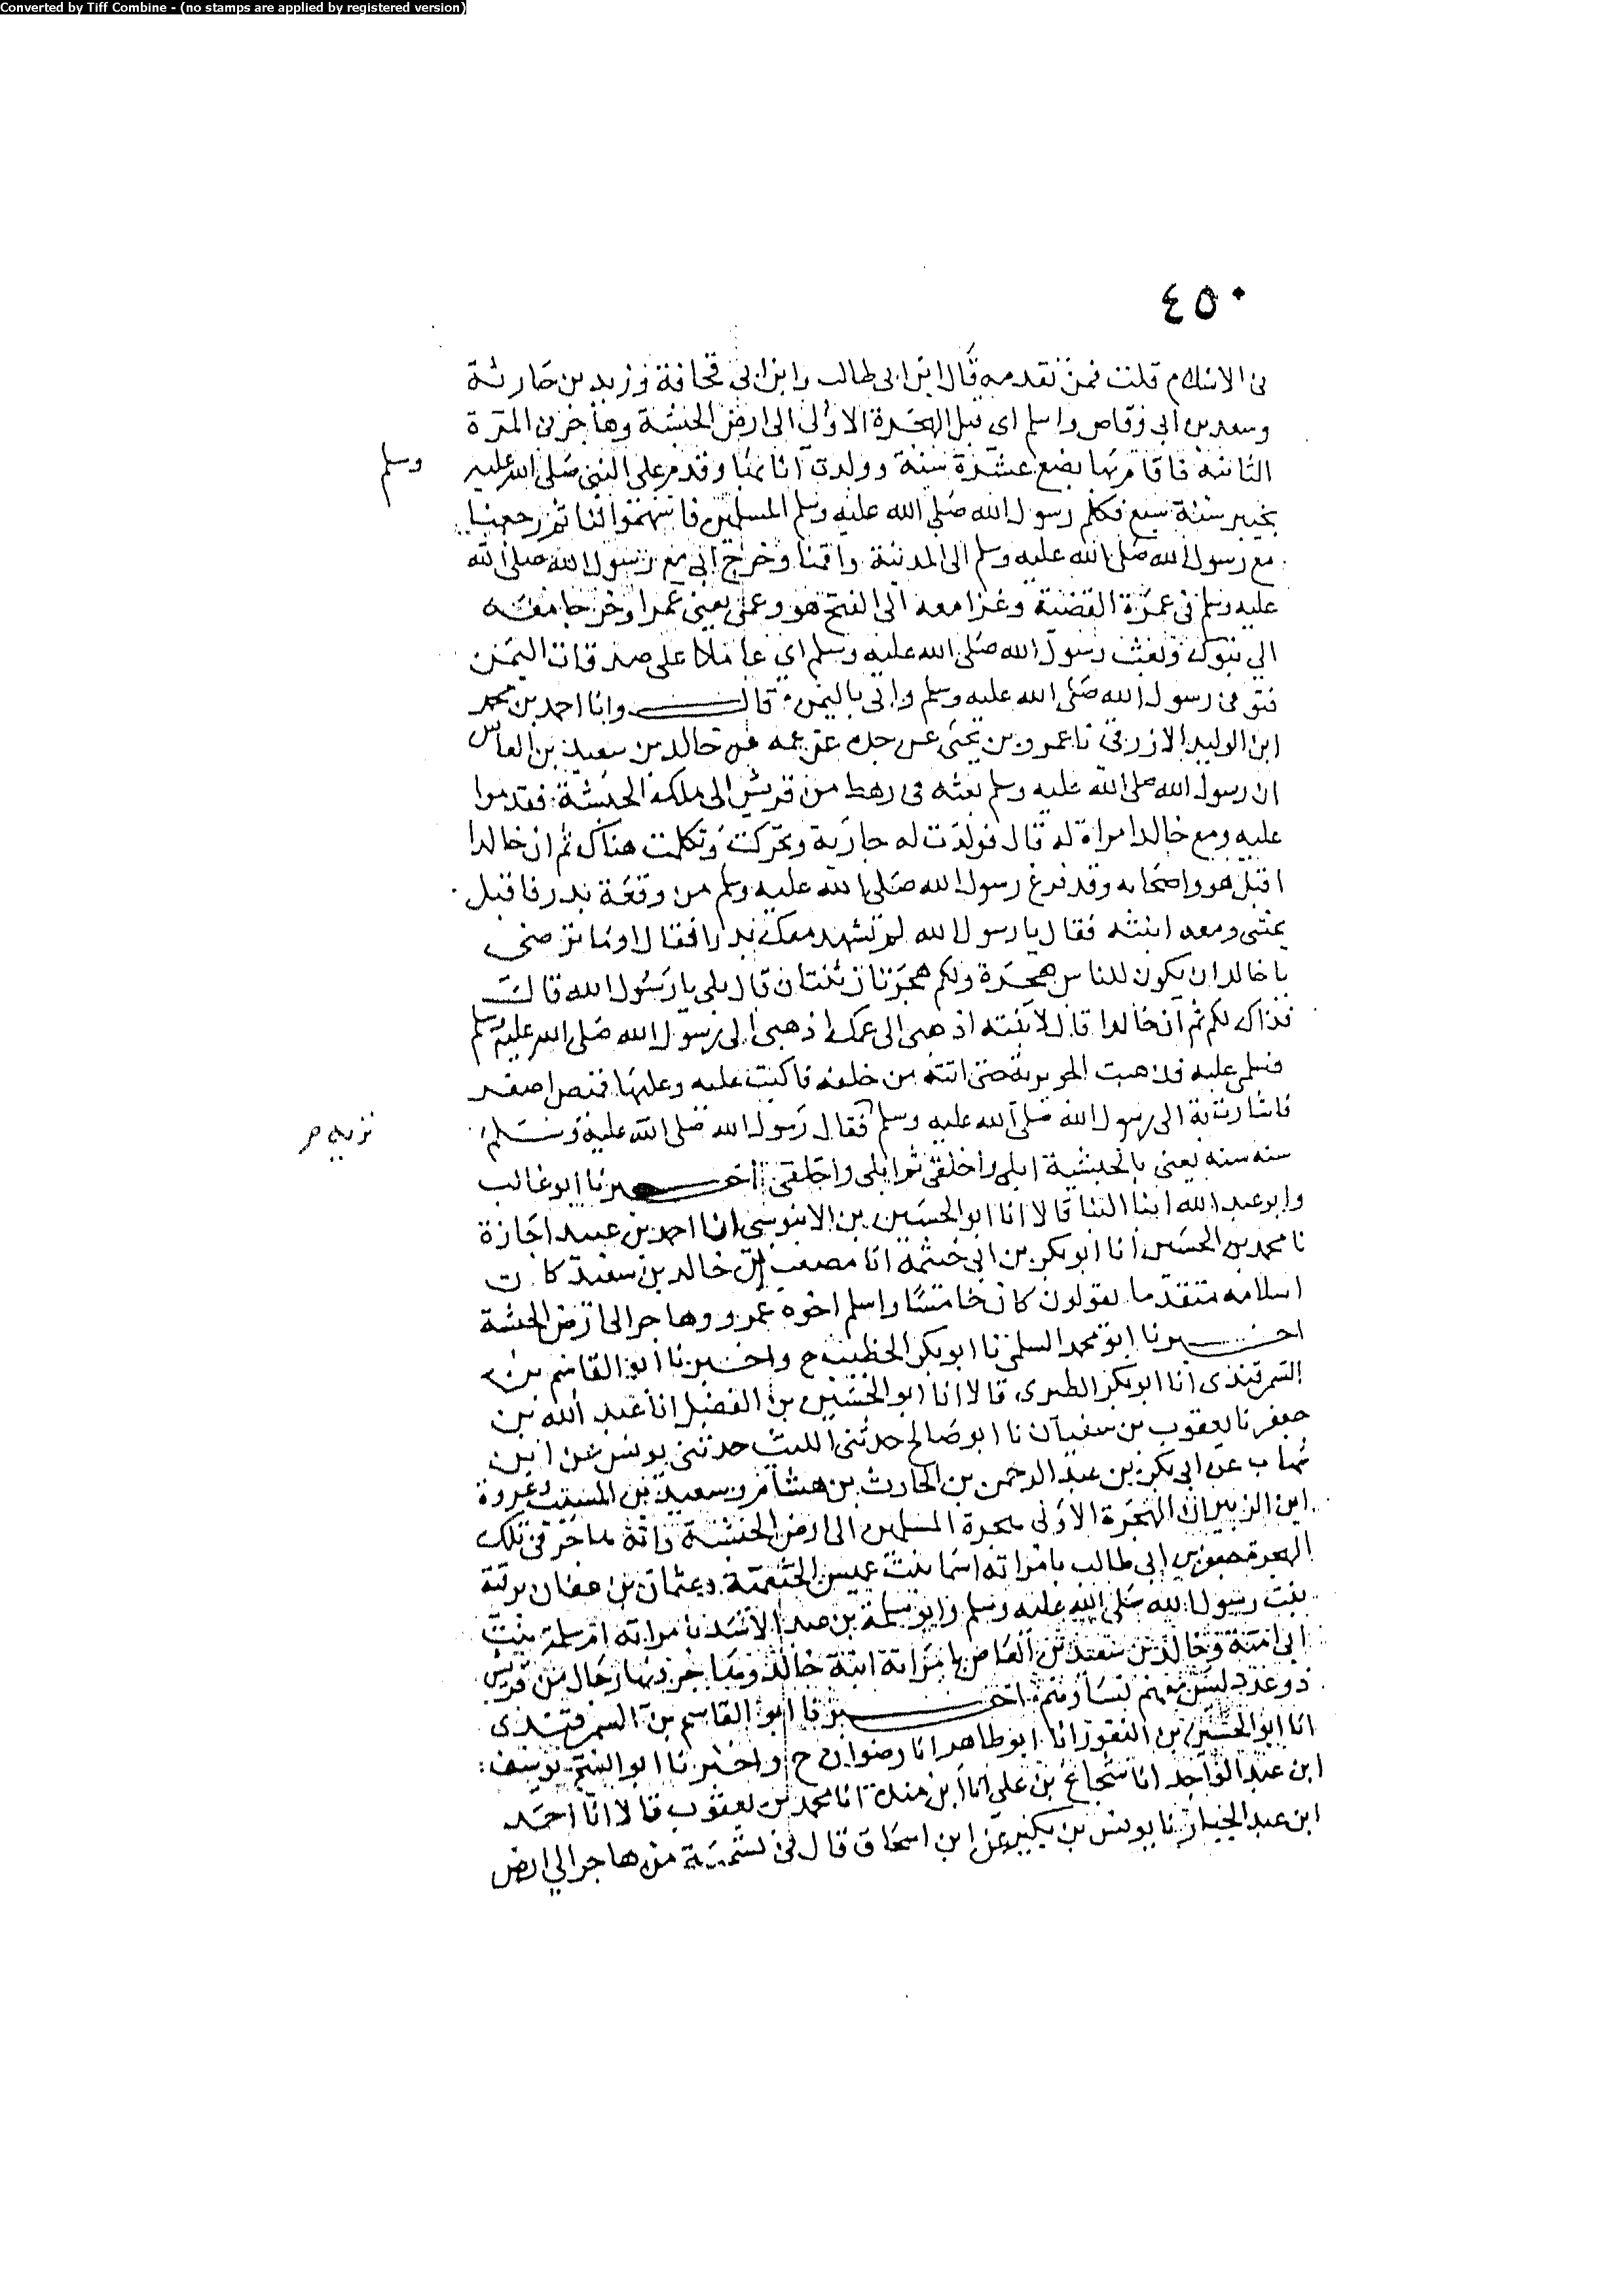 Converted by Tiff Combine - (no stamps are applied by registered version)
٤٥٠
في الاسلام قلت فمن تقدمه قال ابن ابي طالب وابن ابي قحافة وزيد بن حارثة
وسعد بن ابي وقاص واسلم ابي قبل الهجرة الاولى الى ارض الحبشة وهاجر في المرة
الثانية فاقام بها بضع عشرة سنة وولدت انا بها وقدم على النبي صلى الله عليه وسلم
بخيبر سنة سبع فكلم رسول الله صلى الله عليه وسلم المسلمين فاسهموا لنا ثم رجعنا
مع رسول الله صلى الله عليه وسلم الى المدينة واقمنا وخرج ابي مع رسول الله صلى الله
عليه وسلم في عمرة القضية وغزا معه الى الفتح هو وعمي يعني عمرا وخرجا معه
الى تبوك وبعث رسول الله صلى الله عليه وسلم ابي عاملا على صدقات اليمن
فتوفي رسول الله صلى الله عليه وسلم وابي باليمن قال وانا احمد بن محمد
ابن الوليد الازرقي نا عمرو بن يحيى عن جده عن عمه عن خالد بن سعيد بن العاص
ان رسول الله صلى الله عليه وسلم بعثه في رهط من قريش الى ملك الحبشة فقدموا
عليه ومع خالد امراة له قال فولدت له جارية وتحركت وتكلمت هناك ثم ان خالدا
اقبل هو واصحابه وقد فرغ رسول الله صلى الله عليه وسلم من وقعة بدر فاقبل
يمشي ومعه ابنته فقال يا رسول الله لم نشهد معك بدرا فقال اوما ترضى
يا خالد ان يكون للناس هجرة ولكم هجرتان ثنتان قال بلى يا رسول الله قال
فذاك لكم ثم ان خالدا قال لابنته اذهبي الى عمك اذهبي الى رسول الله صلى الله عليه وسلم
فسلمي عليه فذهبت الجويرية حتى اتته من خلفه فاكبت عليه وعليها قميص اصفر
فاشارت به الى رسول الله صلى الله عليه وسلم فقال رسول الله صلى الله عليه وسلم
سنه سنه يعني بالحبشية ابلي واخلقي ثم ابلي واخلقي اخبرنا ابو غالب
وابو عبد الله ابنا البنا قالا انا ابو الحسين بن الابنوسي انا احمد بن عبيد اجازة
نا محمد بن الحسين انا ابو بكر بن ابي خيثمة انا مصعب خالد بن سعيد كان
اسلامه متقدما يقولون كان خامسا واسلم اخوه عمرو وهاجر الى ارض الحبشة
اخبرنا ابو محمد السلمي نا ابو بكر الخطيب ح واخبرنا ابو القاسم بن
السمرقندي انا ابو بكر الطبري قالا انا ابو الحسين بن الفضل انا عبد الله بن
جعفر نا يعقوب بن سفيان نا ابو صالح حدثني الليث حدثني يونس عن ابن
شهاب عن ابي بكر بن عبد الرحمن بن الحارث بن هشام وسعيد بن المسيب وعروة
ابن الزبير ان الهجرة الاولى هجرة المسلمين الى ارض الحبشة وانه هاجر في تلك
الهجرة جعفر بن ابي طالب بامراته اسما بنت عميس الخثعمية وعثمان بن عفان برقية
بنت رسول الله صلى الله عليه وسلم وابو سلمة بن عبد الاسد بامراته ام سلمة بنت
ابي امية وخالد بن سعيد بن العاص بامراته ابنة خالد وهاجر فيها رجال من قريش
ذو عدد ليس معهم نساؤهم اخبرنا ابو القاسم بن السمرقندي
انا ابو الحسين بن النقور انا ابو طاهر انا رضوان ح واخبرنا ابو الفتح يوسف
ابن عبد الواحد انا شجاع بن علي انا ابن مندة انا محمد بن يعقوب قالا انا احمد
ابن عبد الجبار نا يونس بن بكير عن ابن اسحاق قال في تسمية من هاجر الى ارض